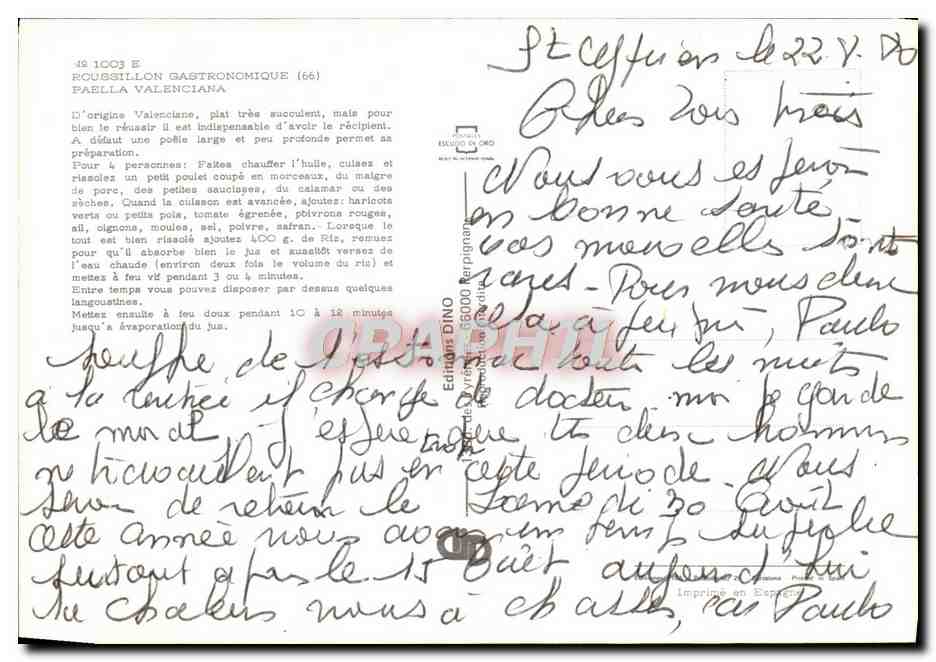 Nº 1003 E
ROUSSILLON GASTRONOMIQUE (66)
PAELLA VALENCIANA
D'origine Valenciane, plat très succulent, mais pour
bien le réussir il est indispensable d'avoir le récipient.
A défaut une poêle large et peu profonde permet sa
préparation.
Pour 4 personnes: Faites chauffer l'huile, cuisez et
rissolez un petit poulet coupé en morceaux, du maigre
de porc, des petites saucisses, du calamar ou des
sèches. Quand la cuisson est avancée, ajoutez: haricots
verts ou petits pois, tomate égrenée, poivrons rouges,
ail, oignons, moules, sel, poivre, safran.- Lorsque le
tout est bien rissolé ajoutez 400 g. de Riz, remuez
pour qu'il absorbe bien le jus et aussitôt versez de
l'eau chaude (environ deux fois le volume du riz) et
mettez à feu vif pendant 3 ou 4 minutes.
Entre temps vous pouvez disposer par dessus quelques
langoustines.
Mettez ensuite à feu doux pendant 10 à 12 minutes
jusqu'a évaporation du jus.
POSTALES
ESCUDO DE ORO
Editions DINO
66000 Perpignan
Reproduction interdite
CPAPHIL
St Cyprien le 22.8.80
Chers vois
Nous vous espérons
en bonne santé
vos nouvelles sont
rares - Pour nous deux
Paulo
souffre de l'estomac toute les nuits
a la rentrée il change de docteur moi je garde
le moral j'espère que les deux hommes
pas en cette periode. Nous
seron de retour le samedi 30 Août
cette année nous avons un temps superbe
surtout apres le 15 Août aujourd hui
la chaleur nous à chassés, car Paulo
Printed in Spain
Imprimé en Espagne